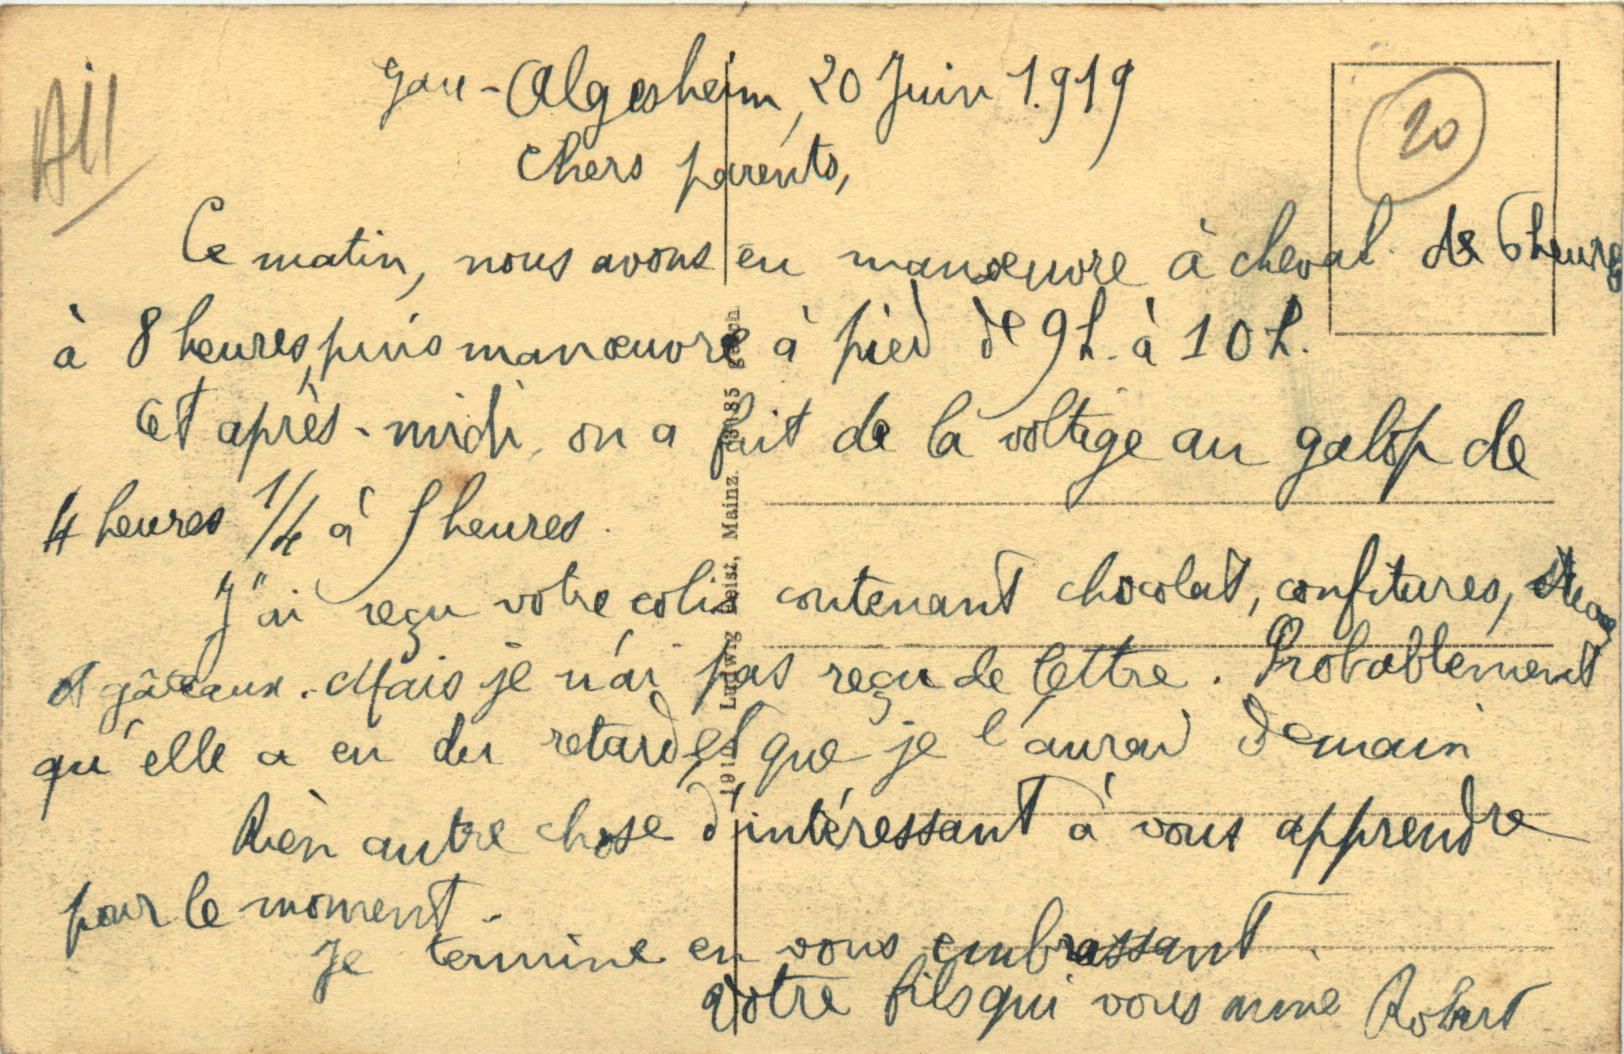 All
20
Gau-Algesheim, 20 Juin 1919
Chers parents,
Ce matin, nous avons eu manœuvre à cheval de 6 heures
à 8 heures, puis manœuvre à pied de 9 h. à 10 h.
Cet après-midi, on a fait de la voltige au galop de
4 heures 1/4 à 5 heures.
J'ai reçu votre colis contenant chocolat, confitures,
et gâteaux. Mais je n'ai pas reçu de lettre. Probablement
qu'elle a eu du retard et que je l'aurai demain
Rien autre chose d'intéressant à vous apprendre
pour le moment.
Je termine en vous embrassant.
Votre fils qui vous aime Robert
Ludwig Feist, Mainz.